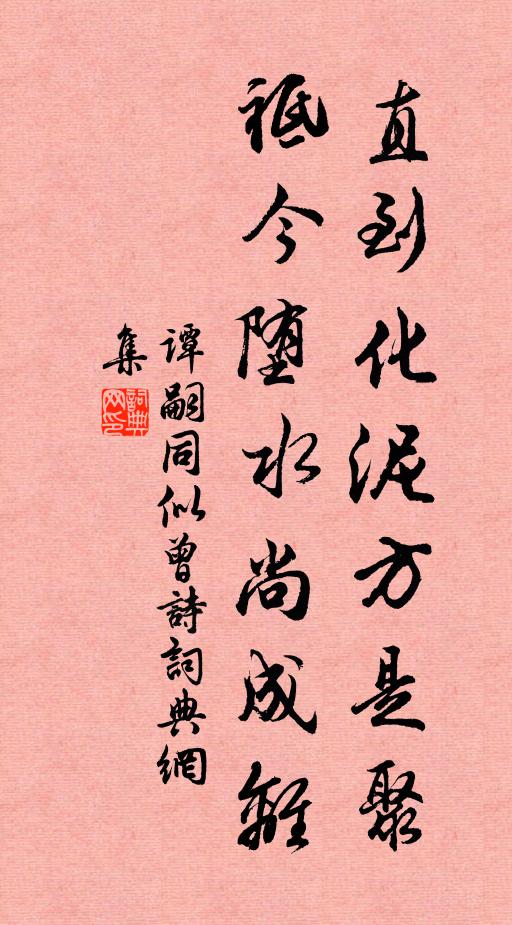 直到化泥方是聚
祗今堕水尚成離
譚嗣同似曾詩詞典網
集
詞典網印